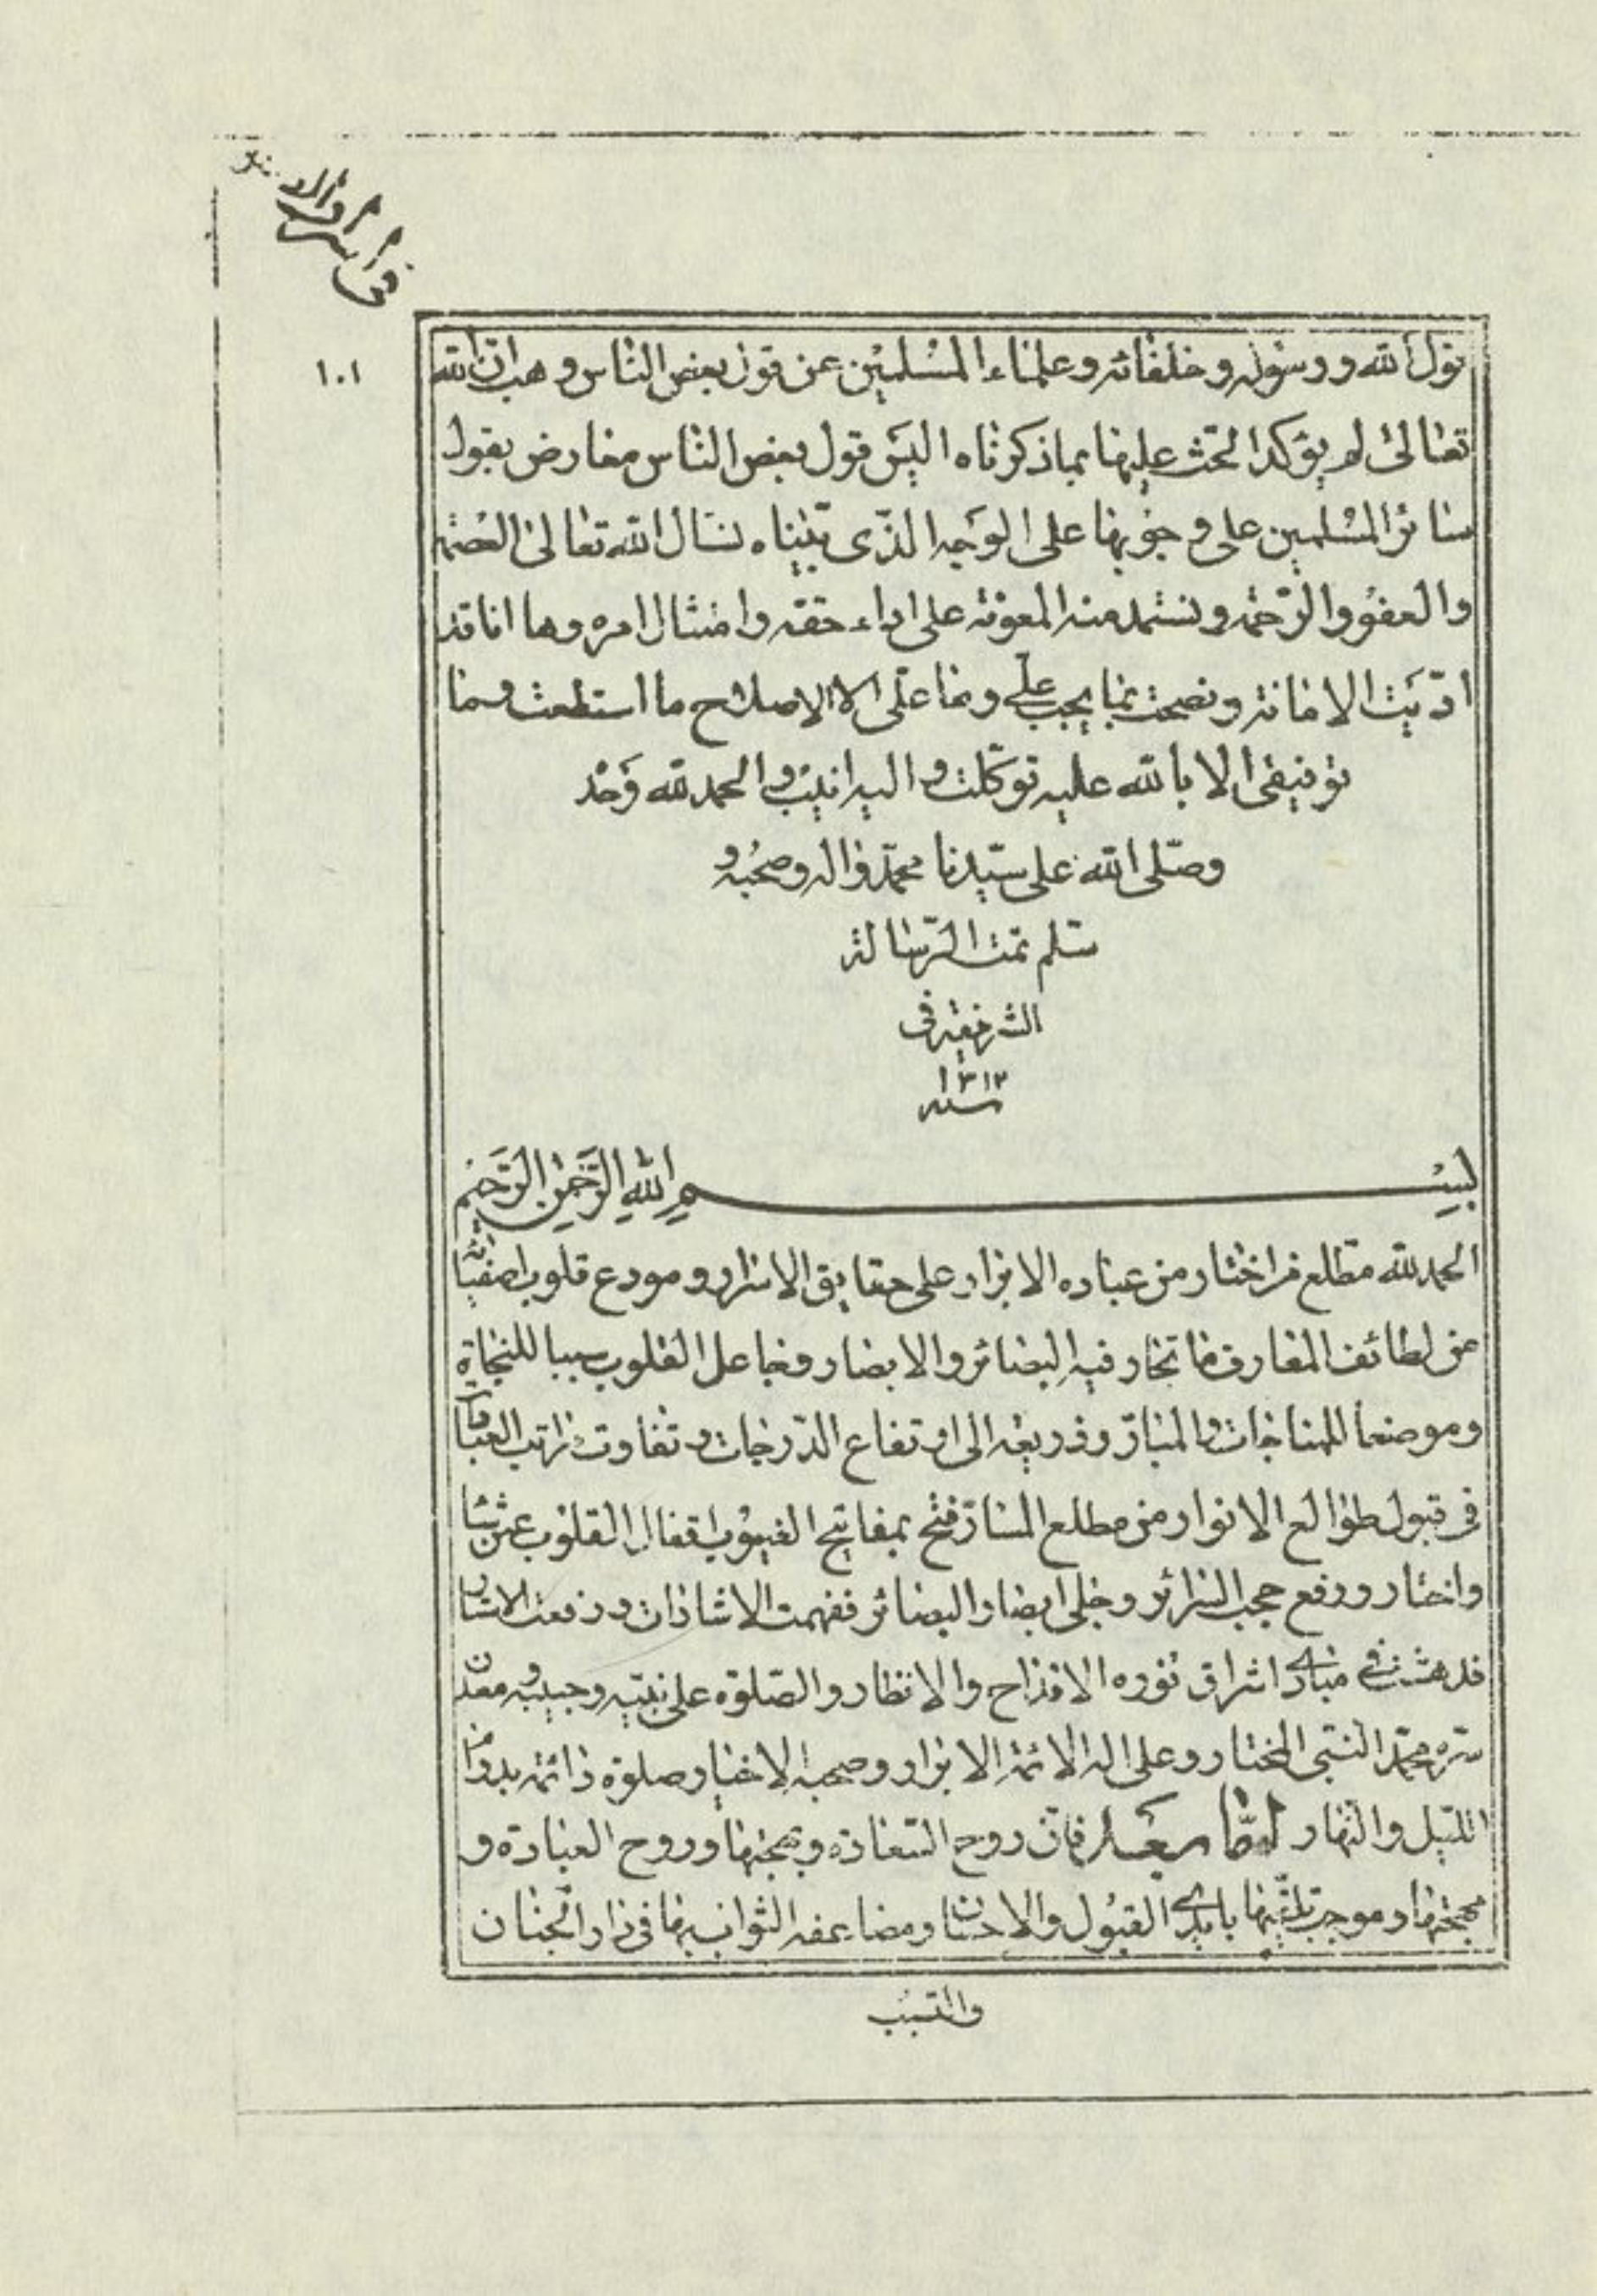 في اسرار
١٠١
بقول الله ورسوله وخلفائه وعلماء المسلمين عن قول بعض الناس وهب ان الله
تعالى لم يؤكد الحث عليها بما ذكرناه اليس قول بعض الناس معارض بقول
سائر المسلمين على وجوبها على الوجه الذى بيّناه نسال الله تعالى العصمة
والعفو والرّحمة ونستمد منه المعونة على اداء حقه وامتثال امره وها انا قد
ادّيت الامانة ونصحت بما يجب علي وما علي الا الاصلاح ما استطعت وما
توفيقى الا بالله عليه توكّلت واليه انيب والحمد لله وحد
وصلى الله على سيّدنا محمّد واله وصحبه و
سلم تمت الرّسالة
الشريفة فى
١٣١٢
سنه
بسم الله الرَّحمن الرَّحيم
الحمد لله مطّلع من اختار من عباده الابرار على حقايق الاسرار ومودع قلوب اصفيائه
من لطائف المعارف ما تحار فيه البصائر والابصار وجاعل القلوب سببا للنجاة
وموضعا للمناجات والمبارّ وذريعة الى ارتفاع الدّرجات وتفاوت مراتب العبادات
فى قبول طوالع الانوار من مطلع المسارّ فتح بمفاتيح الغيوب اقفال القلوب عمن شا
واختار ورفع حجب السرائر وجلى ابصار البصائر ففهمت الاشارات ورفعت الاستار
فدهشت في مبادى اشراق نوره الافراح والانظار والصّلوة على نبيّه وحبيبه ومعدن
سرّه محمّد النبى المختار وعلى اله الائمة الابرار وصحبه الاخيار صلوة دائمة بدوام
اللّيل والنّهار امّا بعد فانّ روح السّعادة وبهجتها وروح العبادة و
مهجتها وموجب تلقّيها بايدى القبول والاحسان ومضاعفة الثواب بها فى دار الجنان
والسّبب